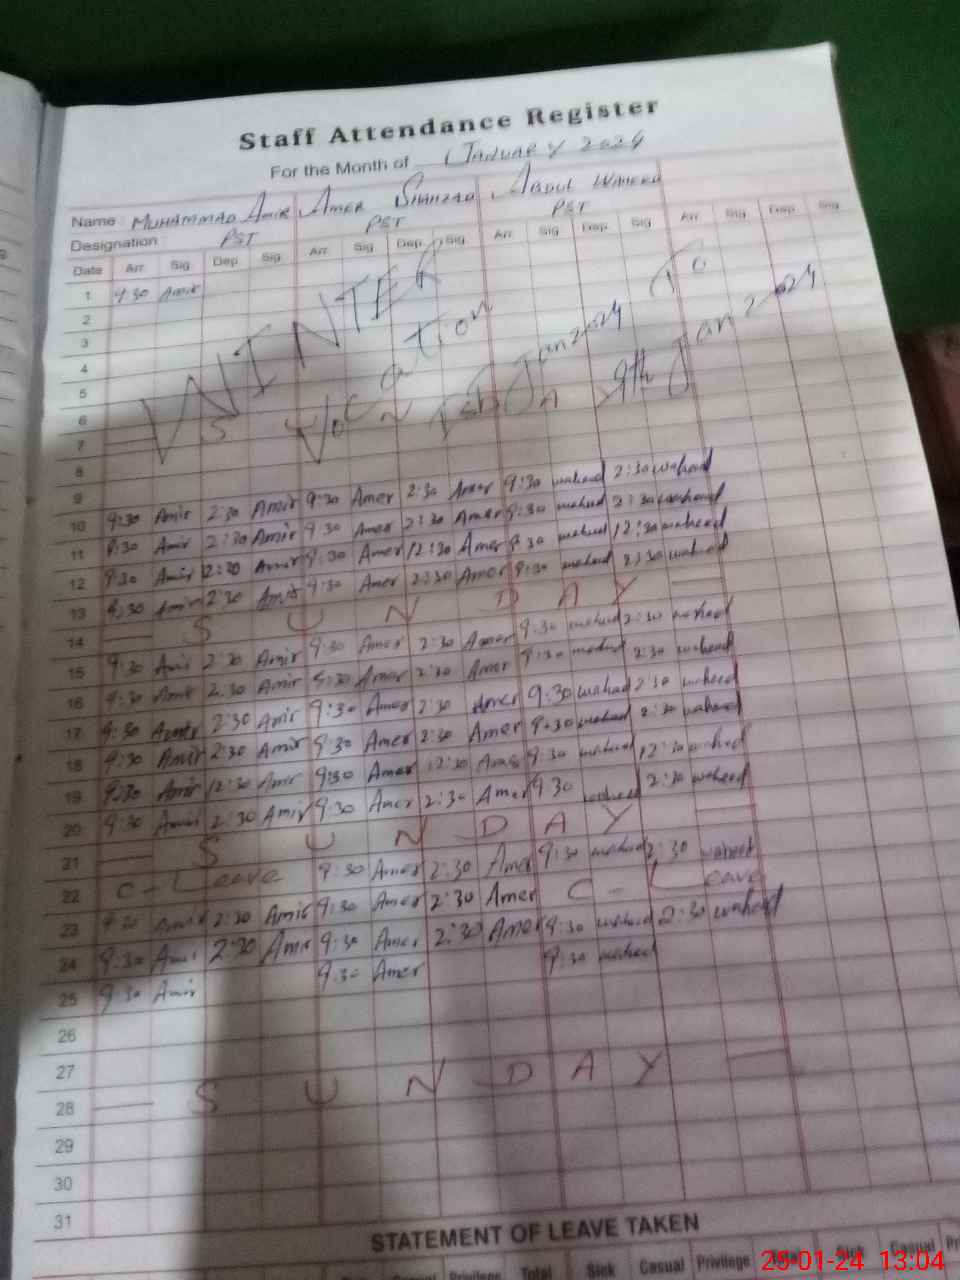 Staff Attendance Register
For the Month of January 2024
Name Muhammad Amir Amer Shahzad Abdul Waheed
Designation PST PST PST
Date Arr Sig Dep Sig Arr Sig Dep Sig Arr Sig Dep Sig Arr Sig Dep Sig
1 9:30 Amir
2
3
4
5
6
7 S U N
8
WINTER
Vocation Ist Jan 2024 To 9th Jan 2024
9
10 9:30 Amir 2:30 Amir 9:30 Amer 2:30 Amer 9:30 waheed 2:30 waheed
11 9:30 Amir 2:30 Amir 9:30 Amer 2:30 Amer 9:30 waheed 2:30 waheed
12 9:30 Amir 12:30 Amir 9:30 Amer 12:30 Amer 9:30 waheed 12:30 waheed
13 9:30 Amir 2:30 Amir 9:30 Amer 2:30 Amer 9:30 waheed 2:30 waheed
14 S U N D A Y
15 9:30 Amir 2:30 Amir 9:30 Amer 2:30 Amer 9:30 waheed 2:30 waheed
16 9:30 Amir 2:30 Amir 9:30 Amer 2:30 Amer 9:30 waheed 2:30 waheed
17 9:30 Amir 2:30 Amir 9:30 Amer 2:30 Amer 9:30 wahad 2:30 waheed
18 9:30 Amir 2:30 Amir 9:30 Amer 2:30 Amer 9:30 waheed 2:30 waheed
19 9:30 Amir 12:30 Amir 9:30 Amer 12:30 Amer 9:30 waheed 12:30 waheed
20 9:30 Amir 2:30 Amir 9:30 Amer 2:30 Amer 9:30 waheed 2:30 waheed
21 S U N D A Y
22 C - Leave 9:30 Amer 2:30 Amer 9:30 waheed 2:30 waheed
23 9:30 Amir 2:30 Amir 9:30 Amer 2:30 Amer C - Leave
24 9:30 Amir 2:30 Amir 9:30 Amer 2:30 Amer 9:30 waheed 2:30 waheed
25 9:30 Amir 9:30 Amer 9:30 waheed
26
27
28 S U N D A Y
29
30
31
STATEMENT OF LEAVE TAKEN
Privilege Total Sick Casual Privilege Total Sick Casual
25-01-24 13:04